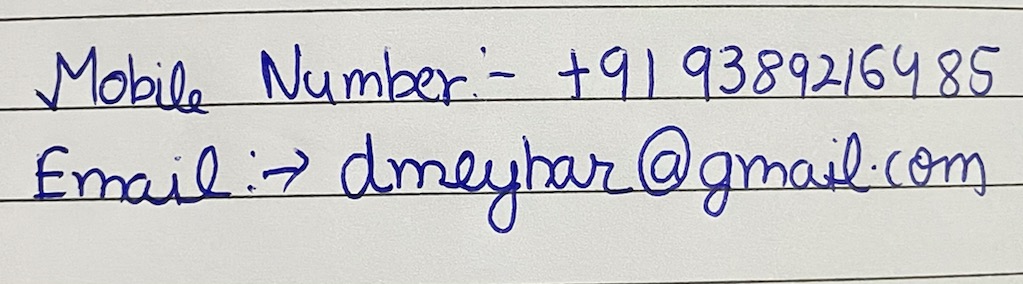 Mobile Number:- +91 9389216485
Email:→ dmeyhar@gmail.com